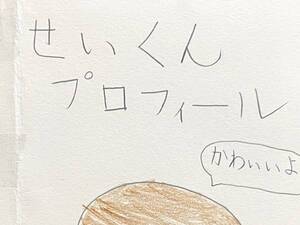 せいくん
プロフィール
かわいいよ